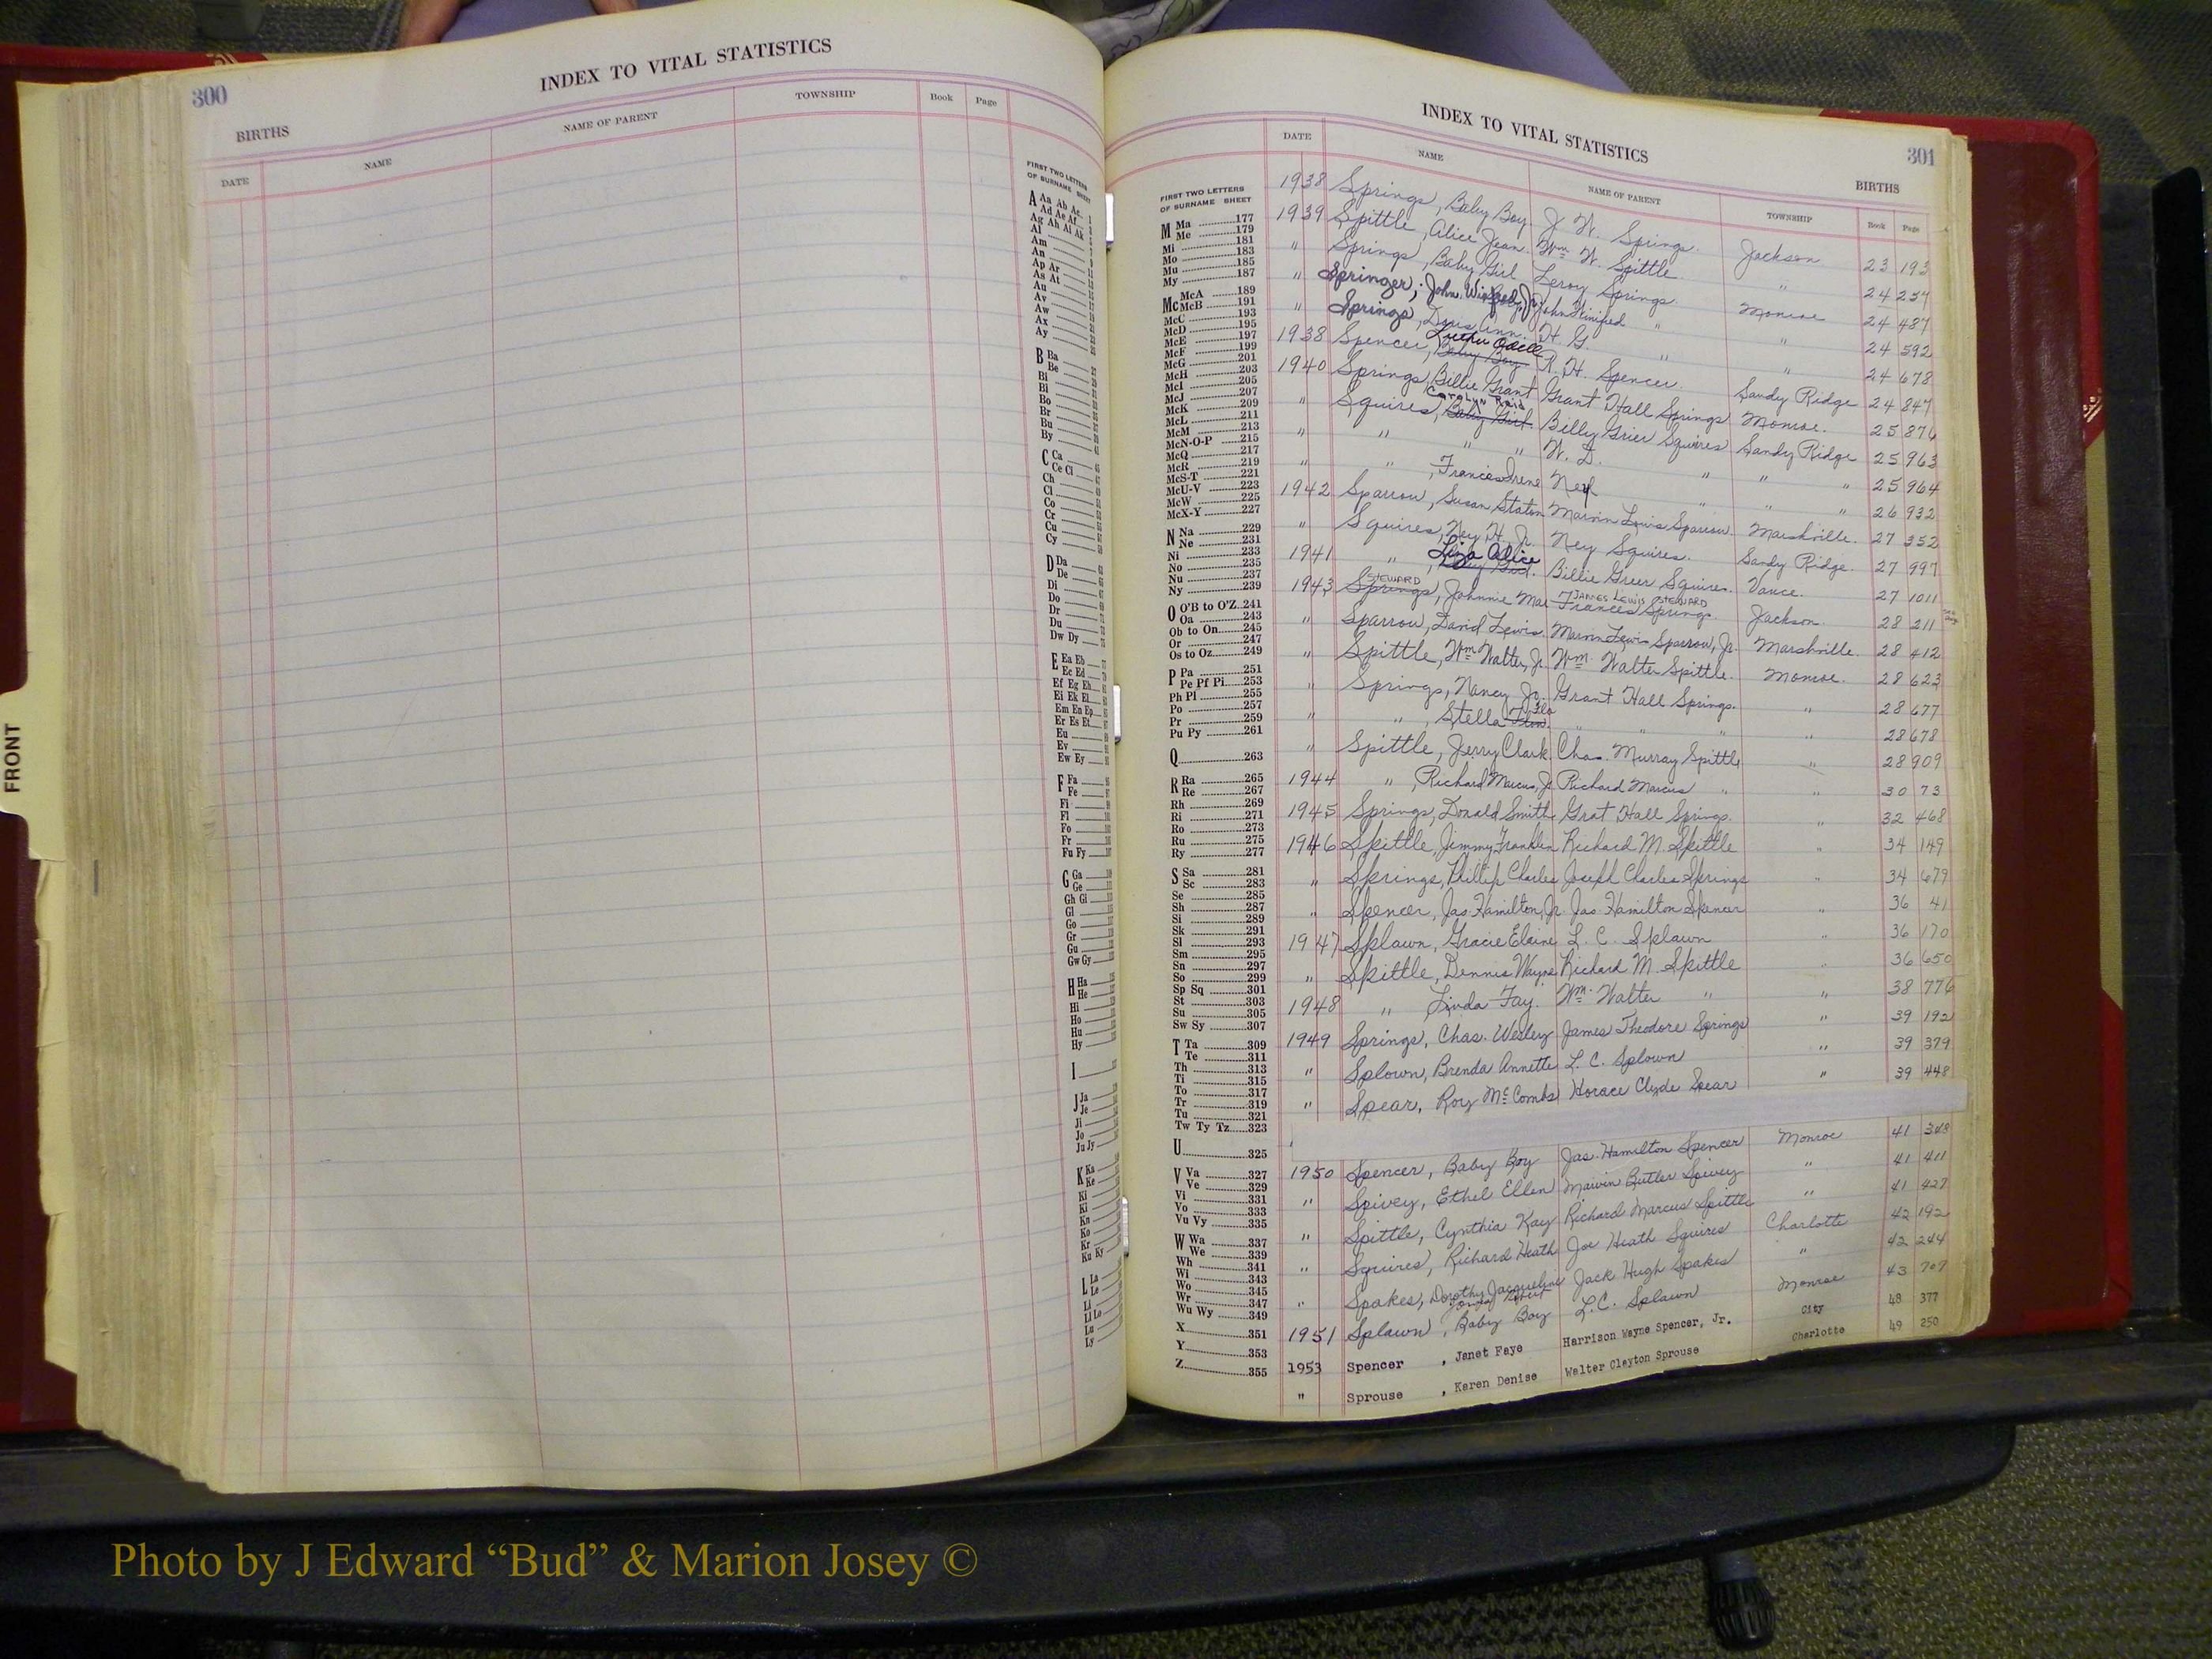 300
INDEX TO VITAL STATISTICS
BIRTHS
DATE NAME NAME OF PARENT TOWNSHIP Book Page
FIRST TWO LETTERS
OF SURNAME SHEET
A Aa Ab Ac
Ad Ae Af
Ag Ah Ai Ak
Al
Am
An
Ap Ar
As At
Au
Av
Aw
Ax
Ay
B Ba
Be
Bi
Bl
Bo
Br
Bu
By
C Ca
Ce Ci
Ch
Cl
Co
Cr
Cu
Cy
D Da
De
Di
Do
Dr
Du
Dw Dy
E Ea Eb
Ec Ed
Ef Eg Eh
Ei Ek El
Em En Ep
Er Es Et
Eu
Ev
Ew Ey
F Fa
Fe
Fi
Fl
Fo
Fr
Fu Fy
G Ga
Ge
Gh Gi
Gl
Go
Gr
Gu
Gw Gy
H Ha
He
Hi
Ho
Hu
Hy
I
J Ja
Je
Ji
Jo
Ju Jy
K Ka
Ke
Ki
Kl
Kn
Ko
Kr
Ku Ky
L La
Le
Li
Ll Lo
Lu
Ly
FRONT
INDEX TO VITAL STATISTICS
301
BIRTHS
FIRST TWO LETTERS
OF SURNAME SHEET
M Ma 177
Me 179
Mi 181
Mo 183
Mu 185
My 187
Mc McA 189
McB 191
McC 193
McD 195
McE 197
McF 199
McG 201
McH 203
McI 205
McJ 207
McK 209
McL 211
McM 213
McN-O-P 215
McQ 217
McR 219
McS-T 221
McU-V 223
McW 225
McX-Y 227
N Na 229
Ne 231
Ni 233
No 235
Nu 237
Ny 239
O O'B to O'Z 241
Oa 243
Ob to On 245
Or 247
Os to Oz 249
P Pa 251
Pe Pf Pi 253
Ph Pl 255
Po 257
Pr 259
Pu Py 261
Q 263
R Ra 265
Re 267
Rh 269
Ri 271
Ro 273
Ru 275
Ry 277
S Sa 281
Sc 283
Se 285
Sh 287
Si 289
Sk 291
Sl 293
Sm 295
Sn 297
So 299
Sp Sq 301
St 303
Su 305
Sw Sy 307
T Ta 309
Te 311
Th 313
Ti 315
To 317
Tr 319
Tu 321
Tw Ty Tz 323
U 325
V Va 327
Ve 329
Vi 331
Vo 333
Vu Vy 335
W Wa 337
We 339
Wh 341
Wi 343
Wo 345
Wr 347
Wu Wy 349
X 351
Y 353
Z 355
DATE NAME NAME OF PARENT TOWNSHIP Book Page
1938 Springs, Baby Boy J. W. Springs Jackson 23 193
1939 Spittle, Alice Jean Wm W. Spittle " 24 257
" Springs, Baby Girl Leroy Springs Monroe 24 487
" Springer, John Winifred, Jr. John Winifred " " 24 592
" Springs, Doris Ann H. G. " " 24 678
1938 Spencer, Baby Boy Luther Odell R. H. Spencer Sandy Ridge 24 847
1940 Springs, Billie Grant Grant Hall Springs Monroe. 25 876
" Squires, Baby Girl Carolyn Reid Billy Grier Squires Sandy Ridge 25 963
" " " " W. D. " " " 25 964
" " , Frances Irene Ney " " " 26 932
1942 Sparrow, Susan Staton Marvin Lewis Sparrow Marshville. 27 352
" Squires, Ney H. Jr. Ney Squires. Sandy Ridge. 27 997
1941 " , Baby Girl. Liza Alice Billie Greer Squires. Vance. 27 1011
1943 Springs, STEWARD Johnnie Mae Frances Springs JAMES LEWIS STEWARD Jackson 28 211
" Sparrow, David Lewis. Marvin Lewis Sparrow, Jr. Marshville. 28 412
" Spittle, Wm Walter, Jr. Wm. Walter Spittle. Monroe. 28 623
" Springs, Nancy Jo. Grant Hall Springs. " 28 677
" " , Stella Flo " " " " 28 678
" Spittle, Jerry Clark Chas. Murray Spittle " 28 909
1944 " , Richard Marcus, Jr Richard Marcus " " 30 73
1945 Springs, Donald Smith Grat Hall Springs. " 32 468
1946 Spittle, Jimmy Franklin Richard M. Spittle " 34 149
" Springs, Phillip Charles Joseph Charles Springs " 34 679
" Spencer, Jas. Hamilton, Jr. Jas. Hamilton Spencer " 36 41
1947 Splawn, Gracie Elaine L. C. Splawn " 36 170
" Spittle, Dennis Wayne Richard M. Spittle " 36 650
1948 " Linda Fay. Wm. Walter " " 38 776
1949 Springs, Chas. Wesley James Theodore Springs " 39 192
" Splown, Brenda Annette L. C. Splown " 39 379
" Spear, Roy McCombs Horace Clyde Spear " 39 448
1950 Spencer, Baby Boy Jas. Hamilton Spencer Monroe 41 348
" Spivey, Ethel Ellen Marvin Butler Spivey " 41 411
" Spittle, Cynthia Kay Richard Marcus Spittle " 41 427
" Squires, Richard Heath Joe Heath Squires Charlotte 42 192
" Spakes, Dorothy Jacqueline Jack Hugh Spakes " 42 244
1951 Splawn, Baby Boy L.C. Splawn Monroe 43 707
1953 Spencer , Janet Faye Harrison Wayne Spencer, Jr. City 48 377
" Sprouse , Karen Denise Walter Clayton Sprouse Charlotte 49 250
Photo by J Edward “Bud” & Marion Josey ©